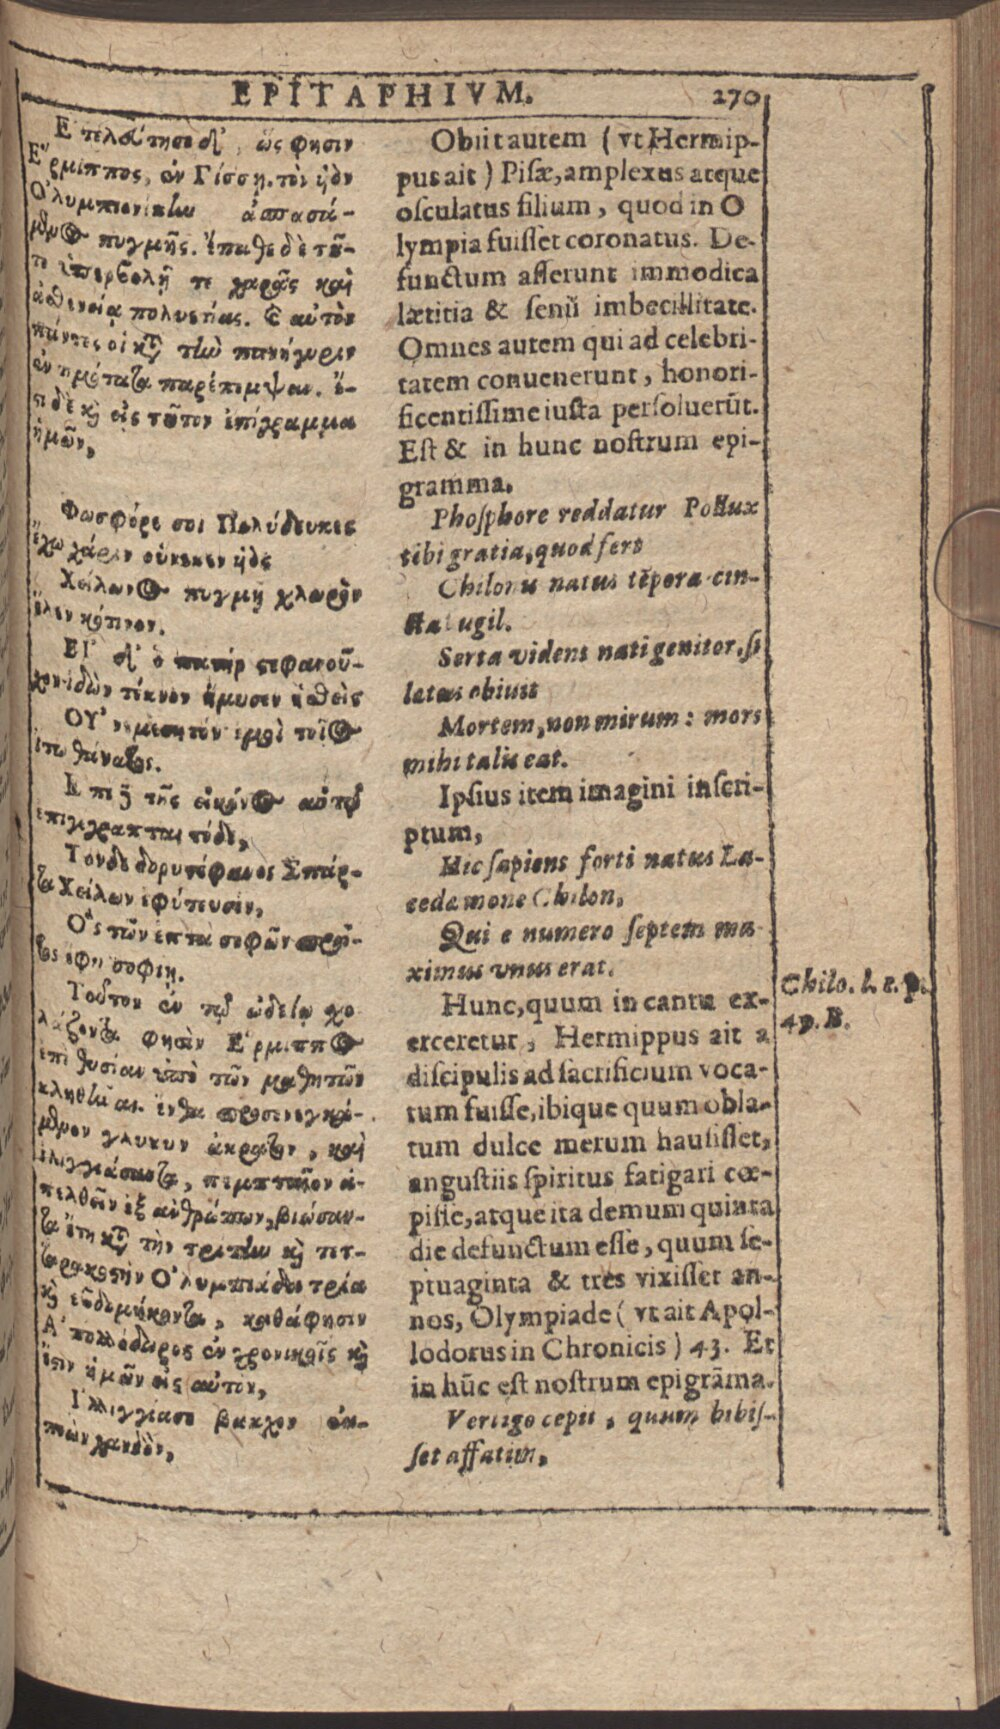 EPITAPHIVM. 270
Ετελεύτησε δ', ὥς φησιν
Ἕρμιππος, ἐν Πίσσῃ. τὸν ὑὸν
Ὀλυμπιονίκην ἀσπασά-
μενος πυγμῆς. ἔπαθε δὲ τῦ-
το ὑπερβολῇ τε χαρᾶς καὶ
ἀσθενείᾳ πολυετίας. & αὐτὸν
πάντες οἱ κατὰ τὴν πανήγυριν
ἐντιμότατα παρέπεμψαν. ἔ-
στι δὲ καὶ εἰς τῦτον ἐπίγραμμα
ἡμῶν,
Φωσφόρε σοι Πολύδευκες
ἔχω χάριν οὕνεκεν ὑὸς
Χείλωνος πυγμῇ χλωρὸν
ἕλεν κότινον.
Εἰ δ' ὁ πατὴρ στεφανοῦ-
χον ἰδὼν τέκνον ἤμυσεν ἡσθεὶς
Οὐ νεμεσητόν· ἐμοὶ τοῖος
ἴτω θάνατος.
Ἐπὶ δὲ τῆς εἰκόνος αὐτοῦ
ἐπιγέγραπται τόδε,
Τόνδε δορυστέφανος Σπάρ-
τα Χείλων' ἐφύτευσεν,
Ὃς τῶν ἑπτὰ σοφῶν πρῶ-
τος ἔφυ σοφίῃ.
Τοῦτον ἐν τῷ ᾠδείῳ σχο
λάζοντα φησὶν Ἕρμιππος
ἐπὶ θυσίαν ὑπὸ τῶν μαθητῶν
κληθῆναι. ἔνθα προσενεγκά-
μενον γλυκὺν ἄκρατον, καὶ
ἰλιγγιάσαντα, πεμπταῖον ἀ-
πελθεῖν ἐξ ἀνθρώπων, βιώσαν-
τα ἔτη κατὰ τὴν τρίτην καὶ τετ-
ταρακοστὴν Ὀλυμπιάδα τρία
καὶ ἑβδομήκοντα, καθάφησιν
Ἀπολλόδωρος ἐν χρονικοῖς καὶ
ἔστιν ἡμῶν εἰς αὐτόν,
Ἰλιγγίασε βάκχον ἐκ-
πιὼν χανδὸν,
Obiit autem (vt Hermip-
pus ait) Pisæ, amplexus atque
osculatus filium, quod in O
lympia fuisset coronatus. De-
functum asserunt immodica
lætitia & senii imbecillitate.
Omnes autem qui ad celebri-
tatem conuenerunt, honori-
ficentissime iusta persoluerūt.
Est & in hunc nostrum epi-
gramma.
Phosphore reddatur Pollux
tibi gratia, quod fert
Chilonis natus tēpora cin-
cta ugil.
Serta videns nati genitor, si
latus obiuit
Mortem, non mirum: mors
mihi talis eat.
Ipsius item imagini inscri-
ptum,
Hic sapiens forti natus La-
cedæmone Chilon,
Qui e numero septem ma
ximus vnus erat.
Hunc, quum in cantu ex-
erceretur, Hermippus ait a
discipulis ad sacrificium voca-
tum fuisse, ibique quum obla-
tum dulce merum hausisset,
angustiis spiritus fatigari cœ-
pisse, atque ita demum quinta
die defunctum esse, quum se-
ptuaginta & tres vixisset an-
nos, Olympiade (vt ait Apol-
lodorus in Chronicis) 43. Et
in hūc est nostrum epigrāma.
Vertigo cepit, quum bibis-
set affatim,
Chilo. l. 1. p.
49. B.